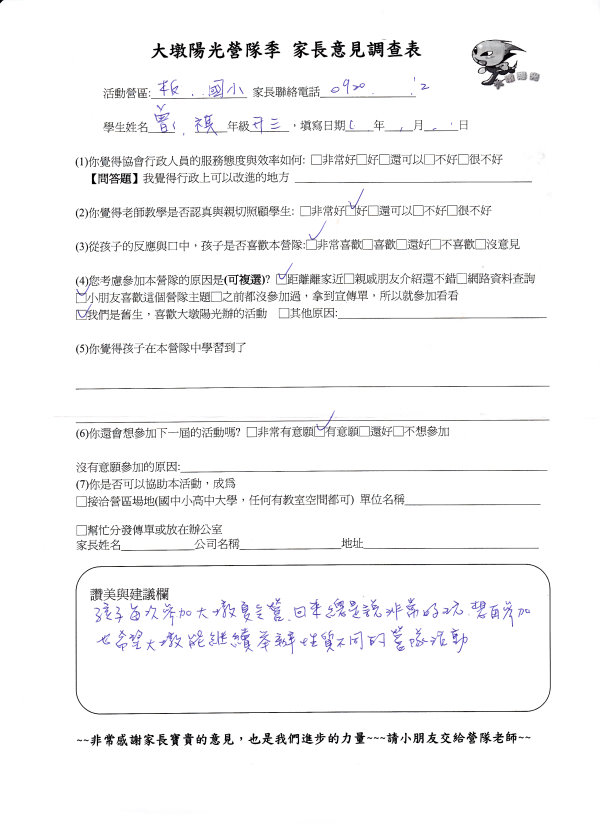 大墩陽光營隊季 家長意見調查表
活動營區: 板 國小 家長聯絡電話 0920 2
學生姓名 曾 祺 年級 升三 ,填寫日期 年 月 日
(1)你覺得協會行政人員的服務態度與效率如何: □非常好□好□還可以□不好□很不好
【問答題】我覺得行政上可以改進的地方
(2)你覺得老師教學是否認真與親切照顧學生: □非常好□好□還可以□不好□很不好
(3)從孩子的反應與口中,孩子是否喜歡本營隊:□非常喜歡□喜歡□還好□不喜歡□沒意見
(4)您考慮參加本營隊的原因是(可複選)? □距離離家近□親戚朋友介紹還不錯□網路資料查詢
□小朋友喜歡這個營隊主題□之前都沒參加過,拿到宣傳單,所以就參加看看
□我們是舊生,喜歡大墩陽光辦的活動 □其他原因:
(5)你覺得孩子在本營隊中學習到了
(6)你還會想參加下一屆的活動嗎? □非常有意願□有意願□還好□不想參加
沒有意願參加的原因:
(7)你是否可以協助本活動,成為
□接洽營區場地(國中小高中大學,任何有教室空間都可) 單位名稱
□幫忙分發傳單或放在辦公室
家長姓名 公司名稱 地址
讚美與建議欄
孩子每次參加大墩夏令營,回來總是說非常好玩,想再參加
也希望大墩能繼續舉辦性質不同的營隊活動
~~非常感謝家長寶貴的意見,也是我們進步的力量~~~請小朋友交給營隊老師~~